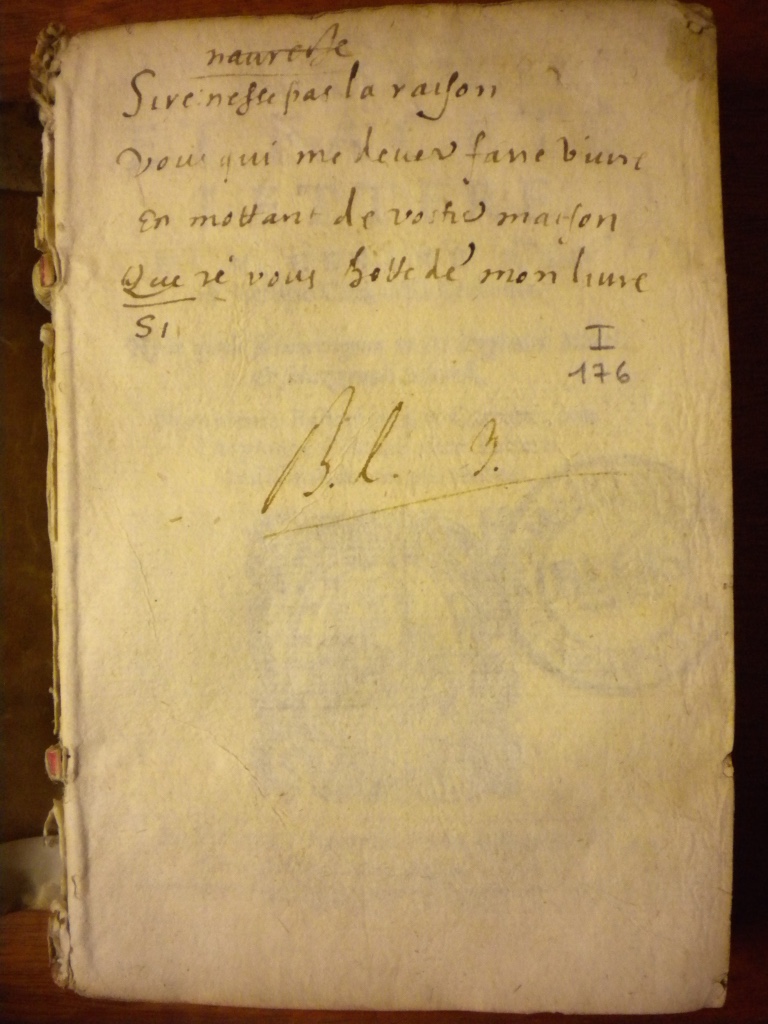 Sire nesse pas la raison
vous qui me deuez faire viure
En mottant de vostre maison
Que ie vous hotte de mon liure
Si
I
176
B. l. 3.